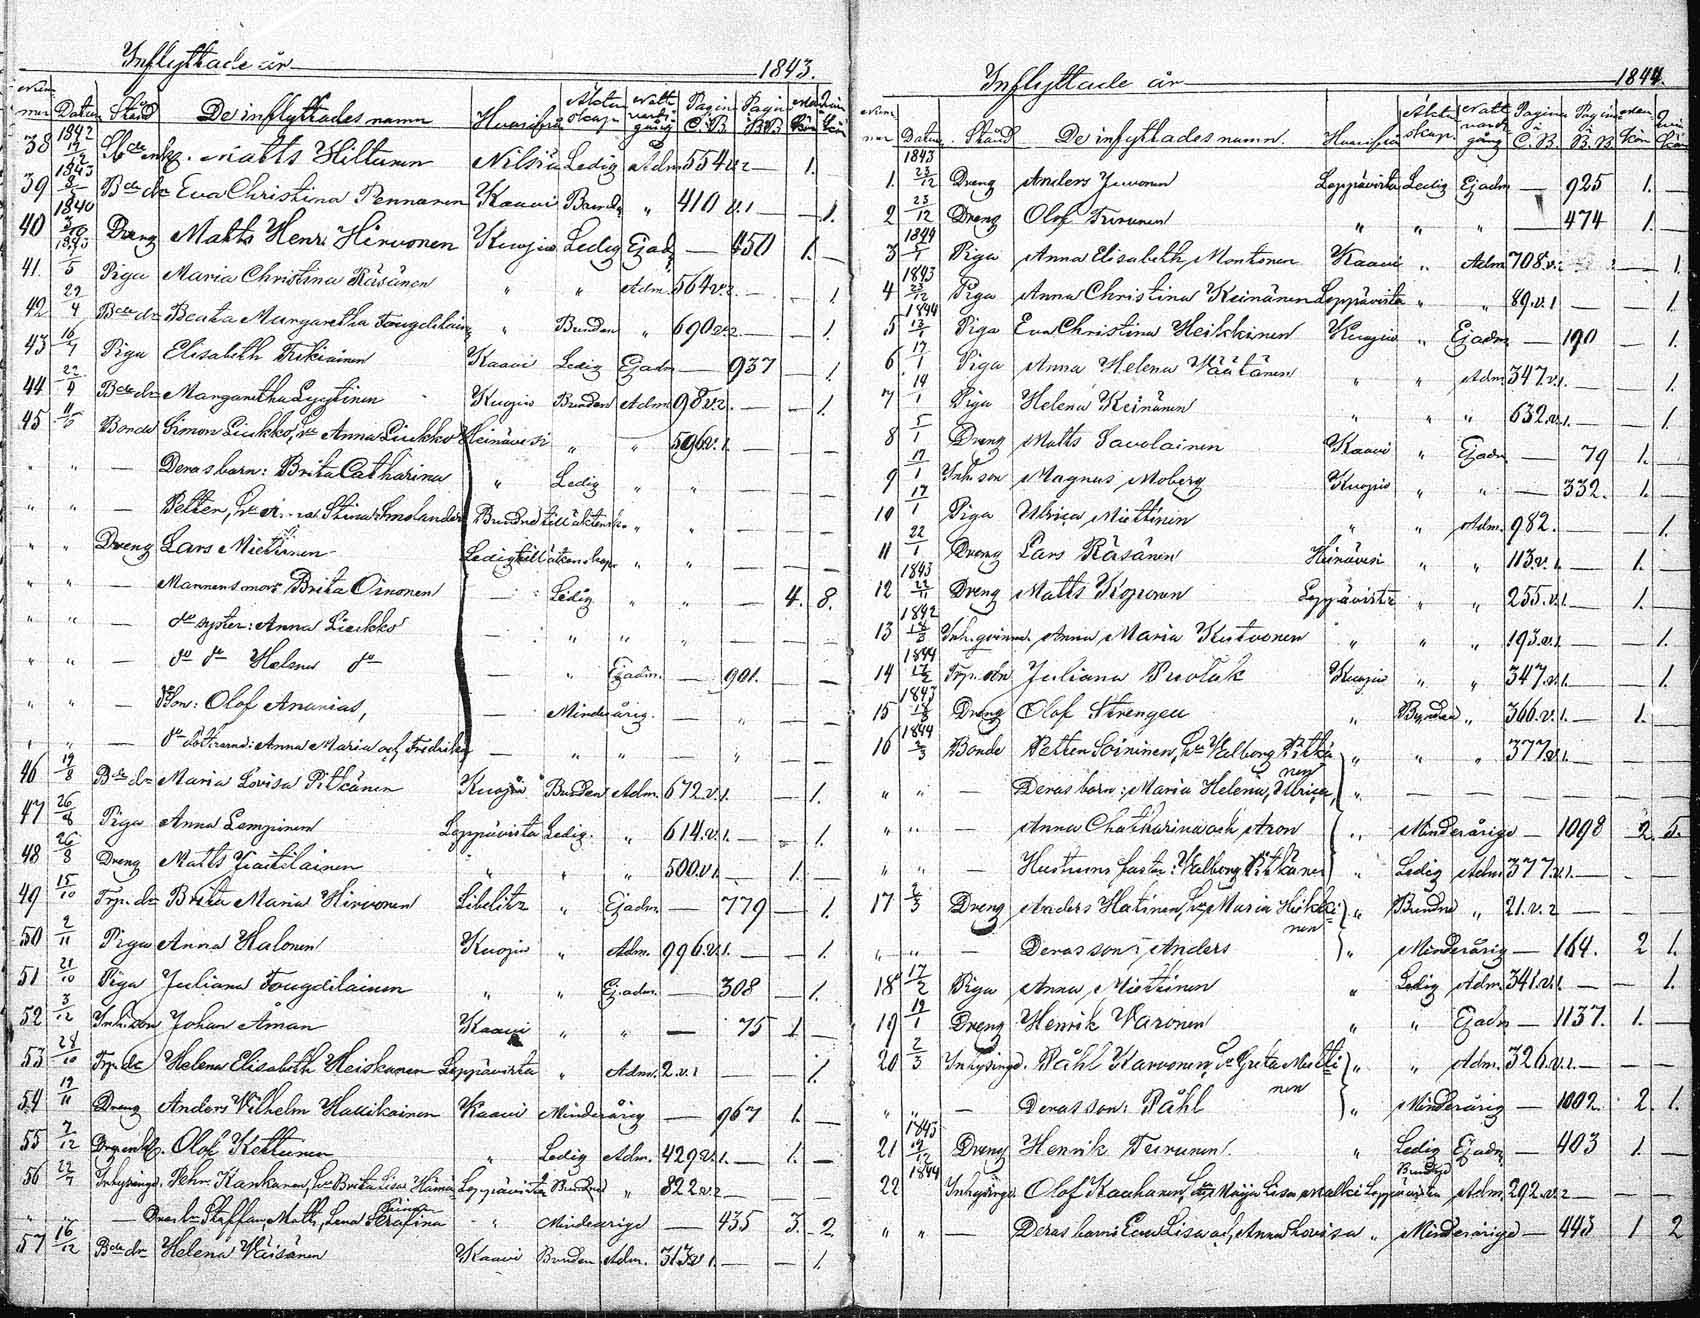 Inflyttade år 1843.
Num mer Datum Stånd De inflyttades namn Hvarifrån Äkten skap. Natt vards gång Pagina C.B. Pagina B.B. Man kön Qvin kön
38 1842 17/12 Matts Hiltunen Nilsiä Ledig Adm. 554 v.2 — 1.
39 1843 Bde dr Eva Christina Pennanen Kaavi Bunden „ 410 v.1 — — 1.
40 1840 Dreng Matts Henr. Hirvonen Kuopio Ledig Ejad. — 450 1.
41. 1843 Piga Maria Christina Räsänen „ „ Adm. 564 v.2. — — 1.
42 22/4 Bde dr Beata Margaretha Fougdilainen „ Bunden „ 690 v.2 — — 1.
43 16/7 Piga Elisabeth Tikkainen Kaavi Ledig Ejadm. — 937 — 1.
44 22/9 Bde dr Margaretha Lyytinen Kuopio Bunden Adm. 98 v.2. — — 1.
45 Bonde Simon Liukko, hu Anna Liukko Heinävesi „ „ 596 v.1. — — —
„ „ — Deras barn: Brita Catharina „ Ledig „ „ — — —
„ „ — Petter, Stina Smolander Bundne till äktensk. „ „ — — —
„ „ Dreng Lars Miettinen Ledig till äktenskap „ „ — — —
„ „ — Mannens mor: Brita Oinonen — Ledig „ „ — 4. 8.
„ „ — do syster: Anna Liukko — „ „ „ — — —
„ „ — do do Helena do — „ Ejadm. — 901. — —
„ „ — Son: Olof Ananias, — Minderårig. — „ — —
„ „ — do döttrarna: Anna Maria och Fredrika — „ „ — „ — —
46 19/8 Bde dr Maria Lovisa Pitkänen Kuopio Bunden Adm. 672 v.1. — 1.
47 26/8 Piga Anna Lempinen Leppävirta Ledig. „ 614 v.1. — — 1.
48 26/8 Dreng Matts „ „ „ 500 v.1 — 1. —
49 15/10 Trp. dr Brita Maria Hirvonen Libelitz „ Ejadm. — 779 — 1.
50 2/11 Piga Anna Halonen Kuopio „ Adm. 996 v.1. — — 1.
51 21/10 Piga Juliana Fougdilainen „ „ Ej adm. — 308 — 1.
52 3/12 Inh. son Johan Åman Kaavi „ „ — 75 1 —
53 28/10 Trp. dr Helena Elisabeth Heiskanen Leppävirta „ Adm. 2. v.1 — — 1.
54 19/11 Dreng Anders Wilhelm Hallikainen Kaavi Minderårig — 967 1. —
55 7/12 Olof Kettunen „ Ledig Adm. 429 v.1. — 1. —
56 22/7 Inhysinge. Pehr Kankanen, hu Brita Lisa Leppävirta Bundne „ 822 v.2 —
„ — Deras bn Staffan, Matts, Lena Serafina „ Minderårige — 435 3. 2
57 16/12 Bde dr Helena Väisänen Kaavi Bunden Adm. 313 v.1. — — 1.
Inflyttade år 1844.
Num mer Datum Stånd De inflyttades namn. Hvarifrån Äkten skap. Natt vards gång Pagina å C.B. Pagina å B.B. Man kön Qvin kön
1. 1843 23/12 Dreng Anders Juvonen Leppävirta Ledig Ejadm — 925 1. —
2 23/12 Dreng Olof Turunen „ „ „ — 474 1. —
3 1844 5/1 Piga Anna Elisabeth Montonen Kaavi „ Adm 708 v.2 — 1.
4 1843 23/12 Piga Anna Christina Keinänen Leppävirta „ „ 89. v.1 — — 1.
5 1844 13/1 Piga Eva Christina Heikkinen Kuopio „ Ejadm — 190 — 1.
6 17/1 Piga Anna Helena Väätänen „ „ Adm. 347. v.1. — — 1.
7 19/1 Piga Helena Keinänen „ „ „ 632. v.1. — — 1.
8 5/1 Dreng Matts Savolainen Kaavi „ Ejadm. — 79 1. —
9 17/1 Inh. son Magnus Moberg Kuopio „ „ — 332. 1. —
10 17/1 Piga Ulrica Miettinen „ „ Adm. 982. — — 1.
11 22/1 Dreng Lars Räsänen Heinävesi „ „ 113. v.1. — 1. —
12 1843 22/11 Dreng Matts Kopponen Leppävirta „ „ 255. v.1. — 1. —
13 1842 18/3 Inh. qvinna Anna Maria Kutvonen „ „ „ 193. v.1. — — 1.
14 1844 17/2 Trp. dr Juliana Puolak Kuopio „ „ 347. v.1. — — 1.
15 1843 18/8 Dreng Olof Strengell „ Bunden „ 366. v.1. — 1. —
16 1844 2/3 Bonde Petter Soininen, hu Walborg Pitkä „ „ „ 377. v.1. — — —
nen
„ „ — Deras barn: Maria Helena, Ulrica, „ — — — — — —
„ „ — Anna Chatharina och Aron „ Minderårige — 1098 2. 5.
„ „ — Hustruns faster: Walborg Pitkänen „ Ledig Adm 377 v.1. — — —
17 2/3 Dreng Anders Hatinen, hu Maria Heikki „ Bundne „ 21. v.2 — — —
nen
„ „ — Deras son: Anders „ Minderårig — 164. 2 1.
18 17/2 Piga Anna Miettinen „ Ledig Adm. 341. v.1. — — 1.
19 19/1 Dreng Henrik Varonen „ „ Ejadm — 1137. 1. —
20 2/3 Inhysinge. Påhl Karvonen, hu Greta Mietti „ „ Adm. 326. v.1. — — —
nen
„ „ — Deras son: Påhl „ Minderårig — 1002. 2. 1.
21 1843 19/12 Dreng Henrik Turunen. „ Ledig Ejadm. — 403 1. —
22 1844 Inhysinge. Olof Kauhanen, hu Maija Lisa Malkki Leppävirta Bundne Adm. 292. v.2 — — —
„ „ — Deras barn: Eva Lisa och Anna Lovisa „ Minderårige — 443 1 2